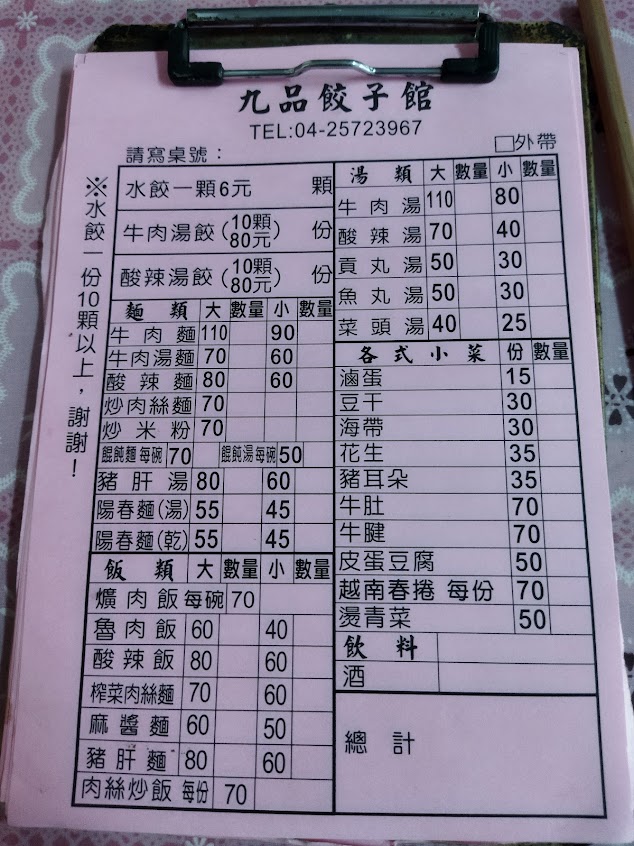 九品餃子館
TEL:04-25723967
請寫桌號： □外帶
※水餃一份10顆以上，謝謝！
水餃一顆6元 顆
牛肉湯餃(10顆80元) 份
酸辣湯餃(10顆80元) 份
麵類 大 數量 小 數量
牛肉麵 110 90
牛肉湯麵 70 60
酸辣麵 80 60
炒肉絲麵 70
炒米粉 70
餛飩麵 每碗 70 餛飩湯 每碗 50
豬肝湯 80 60
陽春麵(湯) 55 45
陽春麵(乾) 55 45
飯類 大 數量 小 數量
爌肉飯 每碗 70
魯肉飯 60 40
酸辣飯 80 60
榨菜肉絲麵 70 60
麻醬麵 60 50
豬肝麵 80 60
肉絲炒飯 每份 70
湯類 大 數量 小 數量
牛肉湯 110 80
酸辣湯 70 40
貢丸湯 50 30
魚丸湯 50 30
菜頭湯 40 25
各式小菜 份 數量
滷蛋 15
豆干 30
海帶 30
花生 35
豬耳朵 35
牛肚 70
牛腱 70
皮蛋豆腐 50
越南春捲 每份 70
燙青菜 50
飲料
酒
總計